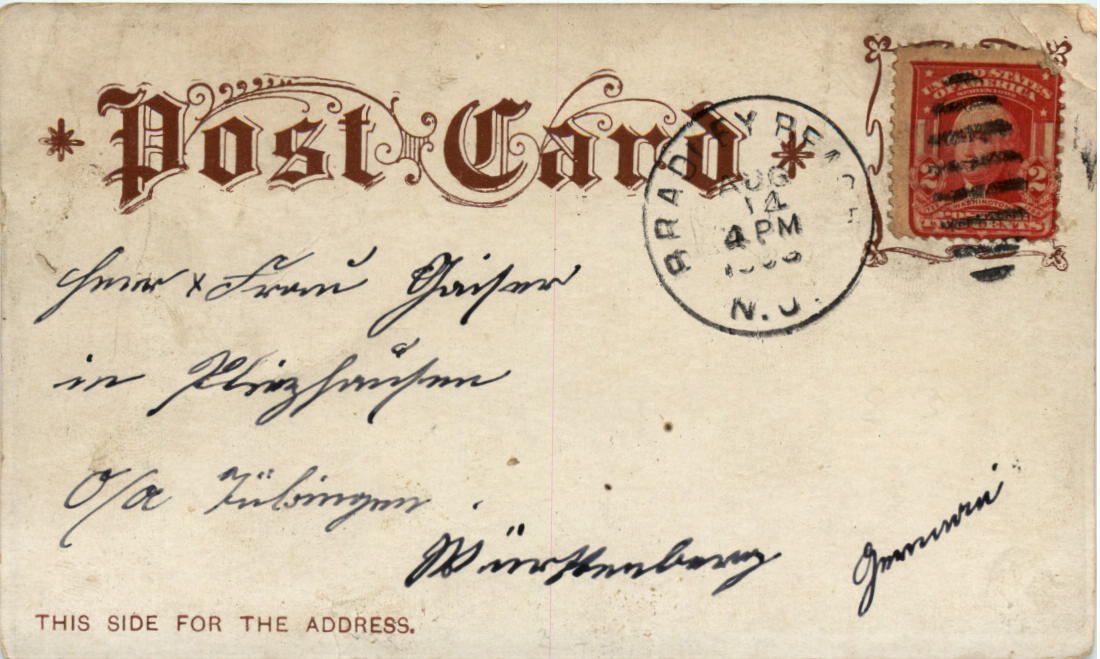 Post Card
BRADLEY BEACH
AUG
14
4 PM
N.J.
UNITED STATES
OF AMERICA
2 2
WASHINGTON
CENTS
Herr & Frau Gaiser
in Pliezhausen
O/A Tübingen.
Württenberg
Germani
THIS SIDE FOR THE ADDRESS.